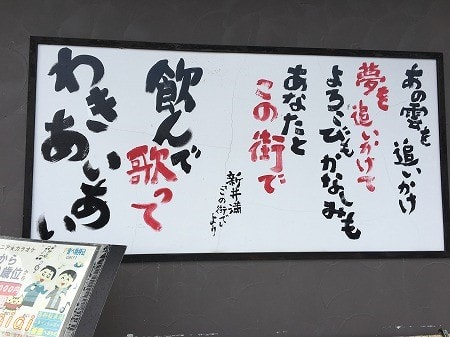 あの雲を追いかけ
夢を追いかけて
よろこびもかなしみも
あなたと
この街で
新井満
この街でより
飲んで
歌って
わきあいあい
ニア&カラオケ
から
歳位